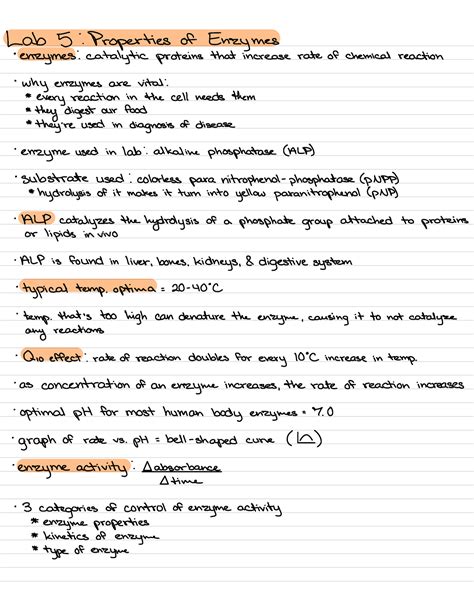 Lab 5: Properties of Enzymes
· enzymes: catalytic proteins that increase rate of chemical reaction
· why enzymes are vital:
* every reaction in the cell needs them
* they digest our food
* they're used in diagnosis of disease
· enzyme used in lab: alkaline phosphatase (ALP)
· substrate used: colorless para nitrophenol-phosphatase (pNPP)
* hydrolysis of it makes it turn into yellow paranitrophenol (pNP)
· ALP catalyzes the hydrolysis of a phosphate group attached to proteins
or lipids in vivo
· ALP is found in liver, bones, kidneys, & digestive system
· typical temp. optima = 20-40°C
· temp. that's too high can denature the enzyme, causing it to not catalyze
any reactions
· Q10 effect: rate of reaction doubles for every 10°C increase in temp.
· as concentration of an enzyme increases, the rate of reaction increases
· optimal pH for most human body enzymes = 7.0
· graph of rate vs. pH = bell-shaped curve ( )
· enzyme activity: Δabsorbance
Δtime
· 3 categories of control of enzyme activity
* enzyme properties
* kinetics of enzyme
* type of enzyme